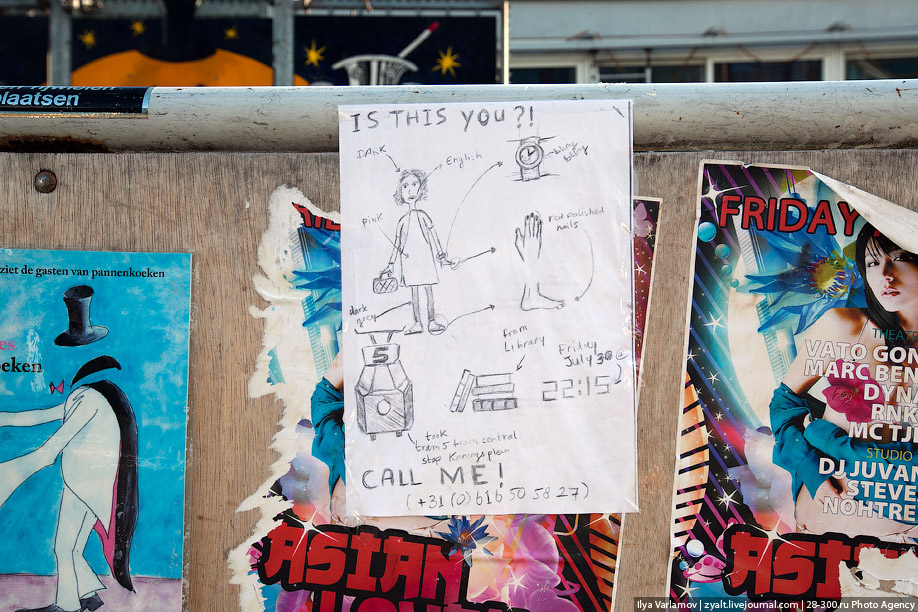 plaatsen
IS THIS YOU?!
DARK
English
bling
bling
pink
red polished
nails
dark
grey
from
Library
Friday
July 30 @
22:15
5
took
tram 5 from central
stop Koningsplein
CALL ME!
(+31 (0) 616 50 58 27)
ziet de gasten van pannenkoeken
es
oeken
ASIAN
FRIDAY
THEAT
VATO GON
MARC BEN
DYNA
RNK
MC TJ
STUDIO
DJ JUVAN
STEVE
NOHTRE
ASIA
Ilya Varlamov | zyalt.livejournal.com | 28-300.ru Photo Agency